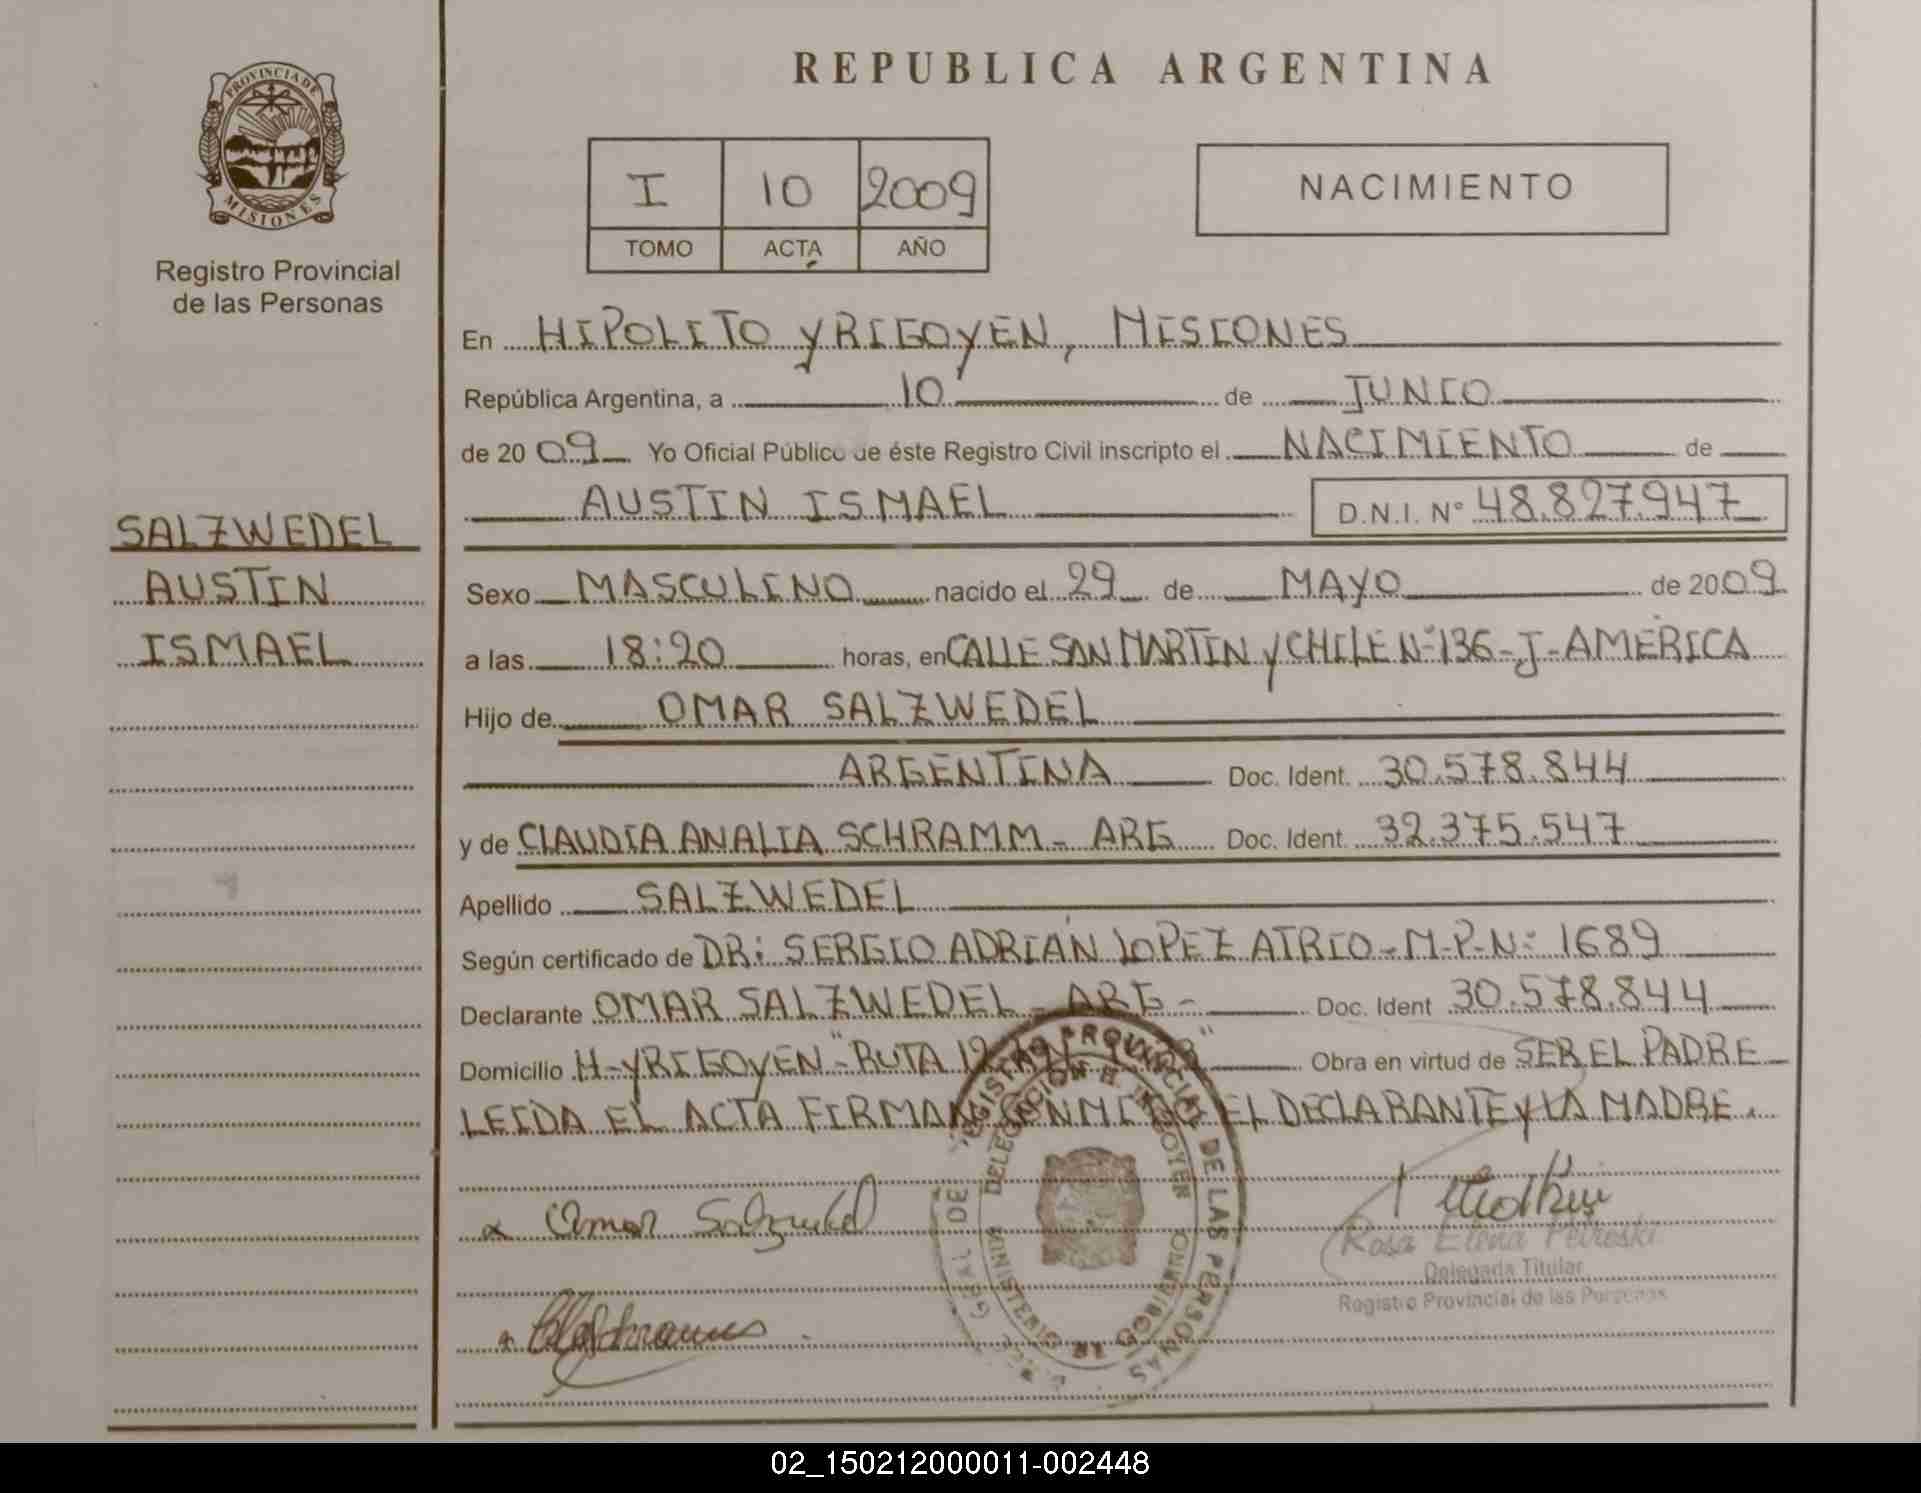 PROVINCIA DE
MISIONES
Registro Provincial
de las Personas
SALZWEDEL
AUSTIN
ISMAEL
REPUBLICA ARGENTINA
I 10 2009
TOMO ACTA AÑO
NACIMIENTO
En HIPOLITO YRIGOYEN, MISIONES
República Argentina, a 10 de JUNIO
de 2009 Yo Oficial Público de éste Registro Civil inscripto el NACIMIENTO de
AUSTIN ISMAEL D.N.I. N° 48.827.947
Sexo MASCULINO nacido el 29 de MAYO de 2009
a las 18:20 horas, en CALLE SAN MARTIN y CHILE N°136-J-AMERICA
Hijo de OMAR SALZWEDEL
ARGENTINA Doc. Ident. 30.578.844
y de CLAUDIA ANALIA SCHRAMM - ARG Doc. Ident. 32.375.547
Apellido SALZWEDEL
Según certificado de DR: SERGIO ADRIAN LOPEZ ATRIO - M-P-N: 1689
Declarante OMAR SALZWEDEL - ARG - Doc. Ident 30.578.844
Domicilio H-YRIGOYEN "RUTA Obra en virtud de SER EL PADRE
LEIDA EL ACTA FIRMAN EL DECLARANTE y LA MADRE.
REGISTRO PROVINCIAL DE LAS PERSONAS
DELEGACION H. YRIGOYEN
MINISTERIO DE GOBIERNO
Omar Salzwedel
Rosa Elena
Delegada Titular
Registro Provincial de las Personas
02_150212000011-002448